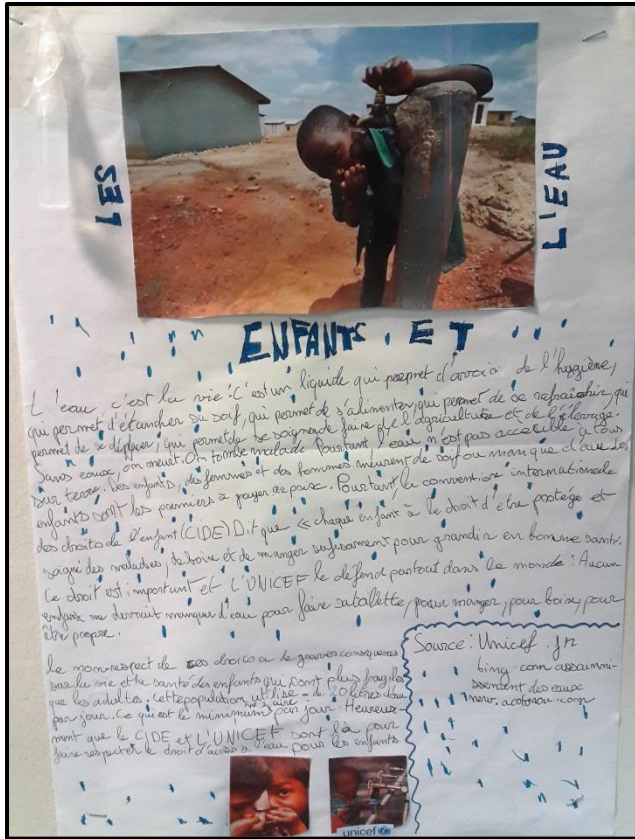 LES
ENFANTS ET
L'EAU
L'eau c'est la vie. C'est un liquide qui permet d'avoir de l'hygiène,
qui permet d'étancher sa soif, qui permet de s'alimenter, qui permet de se rafraichir, qui
permet de se déplacer, qui permet de se soigner, de faire l'agriculture et de l'élevage.
Sans eau, on meurt. On tombe malade. Pourtant l'eau n'est pas accessible à tous
sur terre. Des enfants, des femmes et des hommes meurent de soif ou manque d'eau. Les
enfants sont les premiers à payer ce prix. Pourtant, la convention internationale
des droits de l'enfant (CIDE) Dit que « chaque enfant à le droit d'etre protégé et
soigné des maladies, de boire et de manger sufisamment pour grandir en bonne santé.
Ce droit est important et L'UNICEF le défend partout dans le monde : Aucun
enfant ne devrait manquer d'eau pour faire sa toilette, pour manger, pour boire, pour
être propre.
Le non-respect de ces droits a de graves conséquences
sur la vie et la santé des enfants qui sont plus fragiles
que les adultes. Cette population utilise 20 litres d'eau
par jour. Ce qui est le minimum par jour. Heureuse-
ment que le CIDE et L'UNICEF sont là pour
faire respecter le droit d'accès à l'eau pour les enfants
Source : Unicef . fr
bing . com assainni-
ssement des eaux
www. acotonou . com
unicef